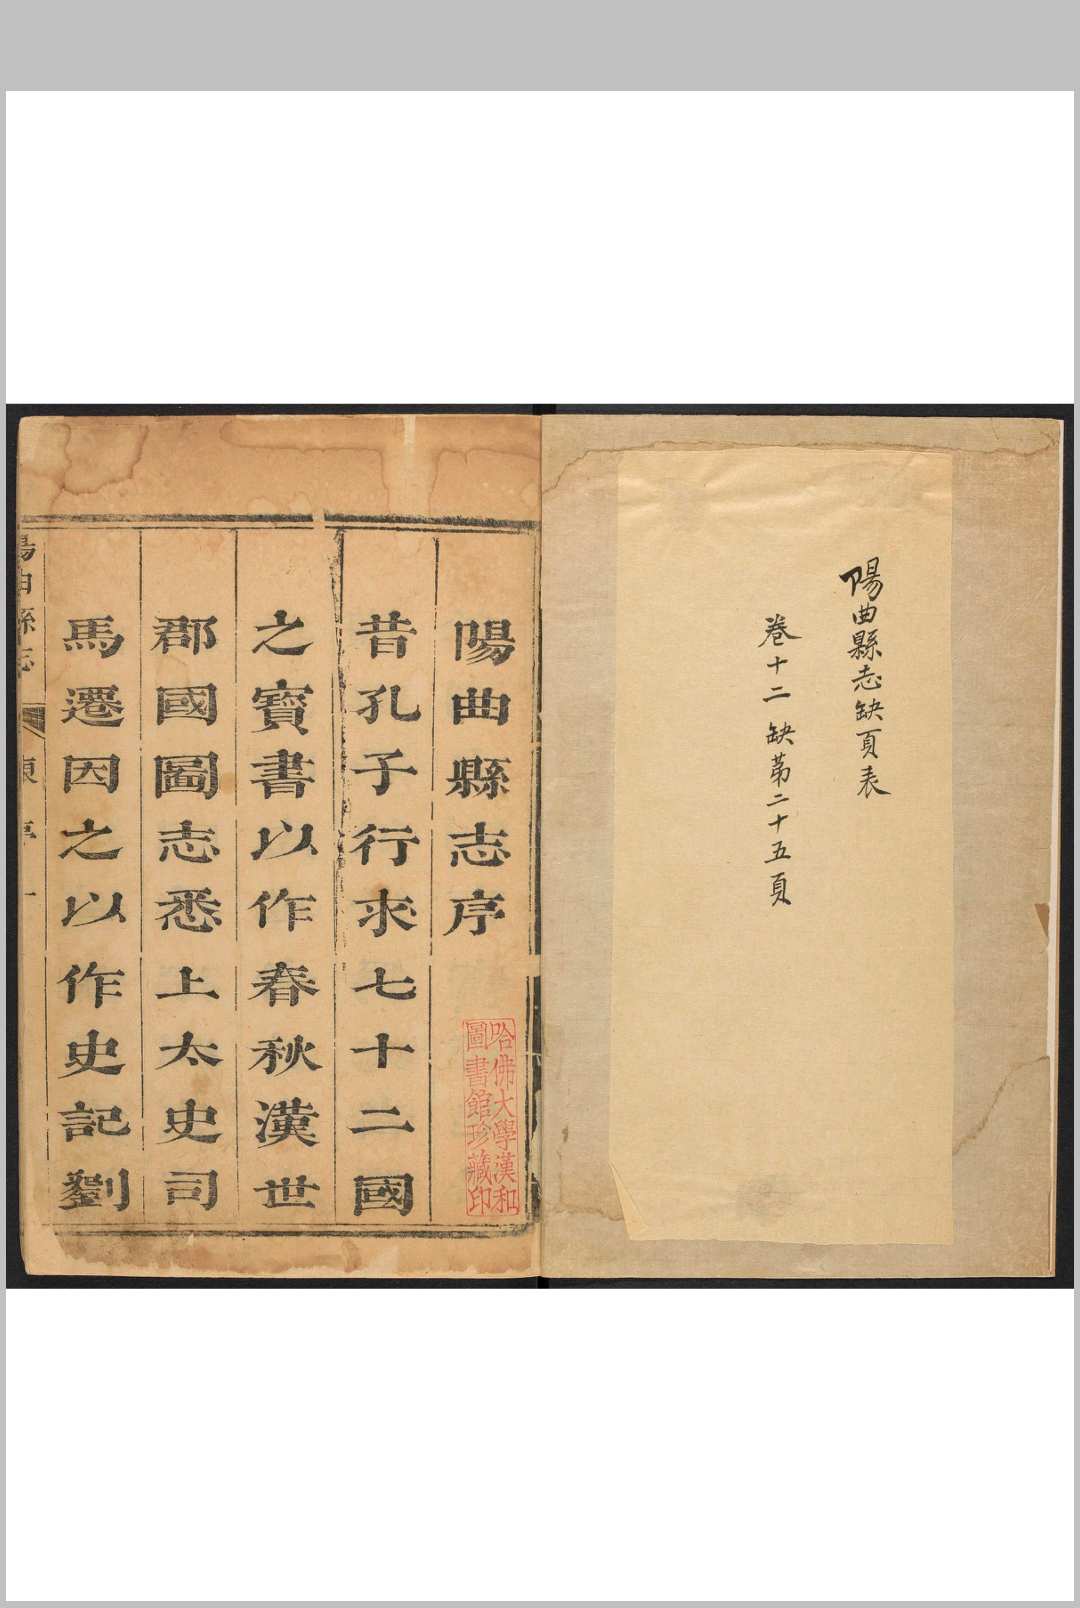 陽曲縣志缺頁表
卷十二 缺第二十五頁
陽曲縣志序
哈佛大學漢和
圖書館珍藏印
昔孔子行求七十二國
之寶書以作春秋漢世
郡國圖志悉上太史司
馬遷因之以作史記劉
陽曲縣志
序 一